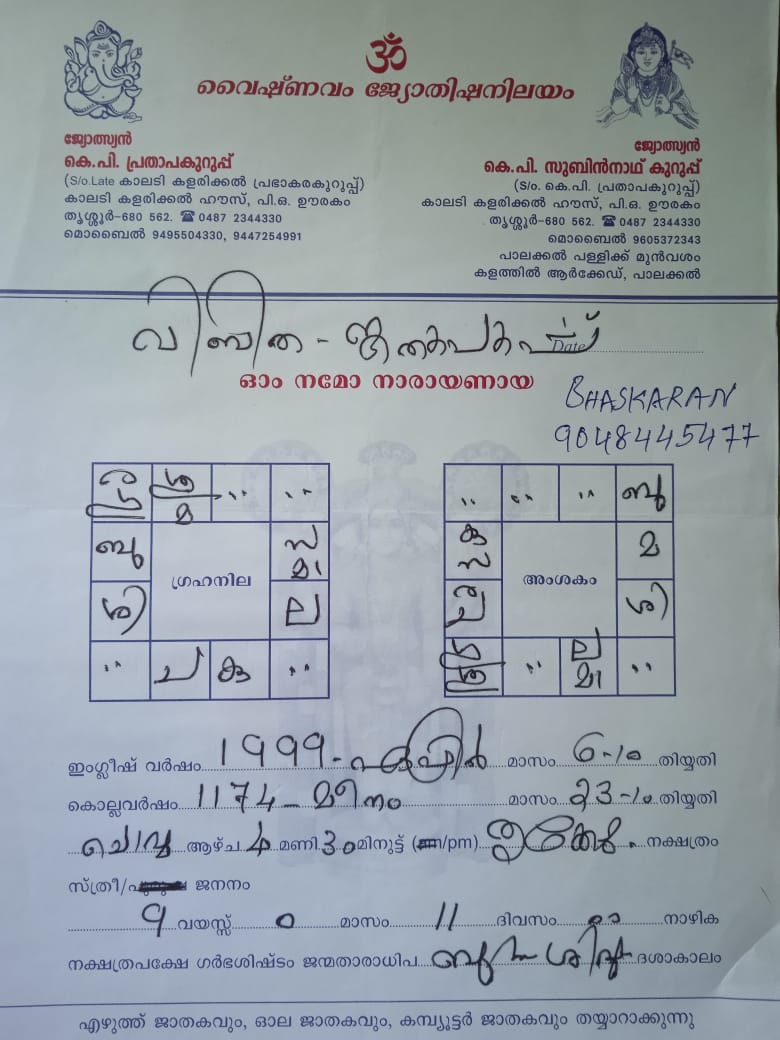 ॐ
വൈഷ്ണവം ജ്യോതിഷനിലയം
ജ്യോത്സ്യൻ
കെ.പി. പ്രതാപകുറുപ്പ്
(S/o.Late കാലടി കളരിക്കൽ പ്രഭാകരകുറുപ്പ്)
കാലടി കളരിക്കൽ ഹൗസ്, പി.ഒ. ഊരകം
തൃശ്ശൂർ-680 562. ☎ 0487 2344330
മൊബൈൽ 9495504330, 9447254991
ജ്യോത്സ്യൻ
കെ.പി. സുബിൻനാഥ് കുറുപ്പ്
(S/o. കെ.പി. പ്രതാപകുറുപ്പ്)
കാലടി കളരിക്കൽ ഹൗസ്, പി.ഒ. ഊരകം
തൃശ്ശൂർ-680 562. ☎ 0487 2344330
മൊബൈൽ 9605372343
പാലക്കൽ പള്ളിക്ക് മുൻവശം
കളത്തിൽ ആർക്കേഡ്, പാലക്കൽ
വിബിത -
Date
ഓം നമോ നാരായണായ
BHASKARAN
9048445477
ബു സ
മാ
ഗ്രഹനില
ശി ല
ച കു
ബു
കു സ മ
അംശകം
ശി
ല
മാ
ഇംഗ്ലീഷ് വർഷം 1999 - ഏപ്രിൽ മാസം 6-ാം തിയ്യതി
കൊല്ലവർഷം 1174 - മീനം മാസം 23-ാം തിയ്യതി
ചൊവ്വ ആഴ്ച 4 മണി 30 മിനുട്ട് (am/pm) തൃക്കേട്ട നക്ഷത്രം
സ്ത്രീ/ ജനനം
9 വയസ്സ് 0 മാസം 11 ദിവസം നാഴിക
നക്ഷത്രപക്ഷേ ഗർഭശിഷ്ടം ജന്മതാരാധിപ ബുധ ശിഷ്ട ദശാകാലം
എഴുത്ത് ജാതകവും, ഓല ജാതകവും, കമ്പ്യൂട്ടർ ജാതകവും തയ്യാറാക്കുന്നു